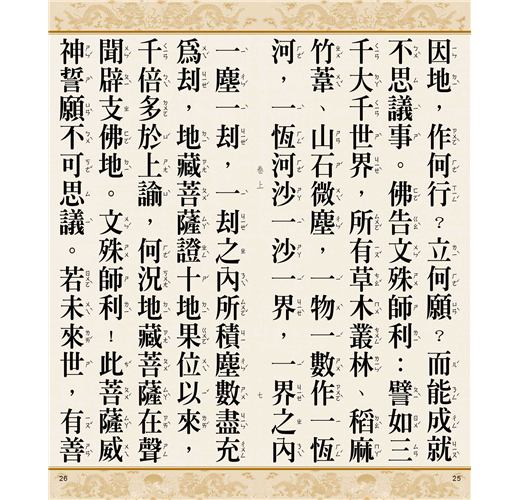 因地，作何行？立何願？而能成就
不思議事。佛告文殊師利：譬如三
千大千世界，所有草木叢林、稻麻
竹葦、山石微塵，一物一數作一恆
河，一恆河沙一沙一界，一界之內
卷上
七
一塵一劫，一劫之內所積塵數盡充
為劫，地藏菩薩證十地果位以來，
千倍多於上諭，何況地藏菩薩在聲
聞辟支佛地。文殊師利！此菩薩威
神誓願不可思議。若未來世，有善
25
26